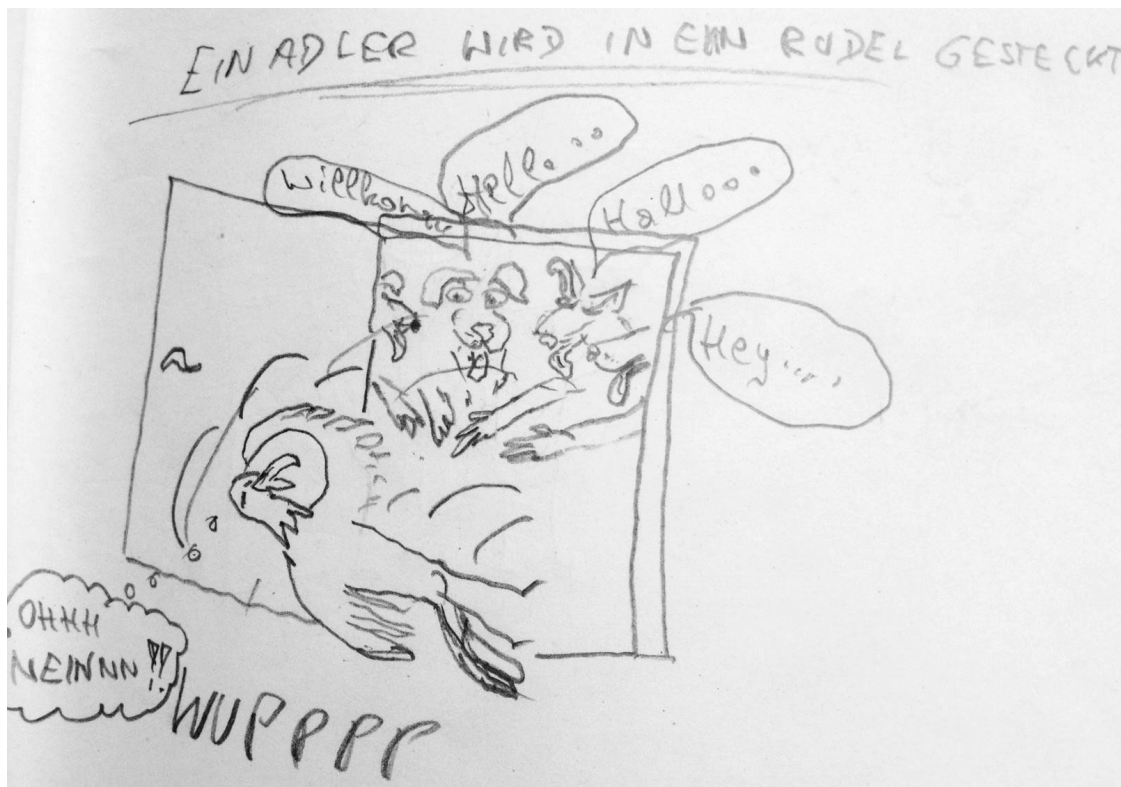 EIN ADLER WIRD IN EIN RUDEL GESTECKT
Willkomm
Hell....
Hallooo
Hey.....
OHHH
NEINNN !!
WUPPPP